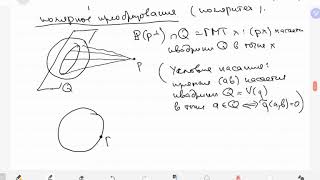 полярное преобразование (поляритет).
ℙ(p⊥) ∩ Q = ГМТ x : (px) касается
квадрики Q в точке x
P
Q
(Условие касания:
прямая (ab) касается
квадрики Q = V(q)
в точке a ∈ Q ⇔ q̃(a,b)=0)